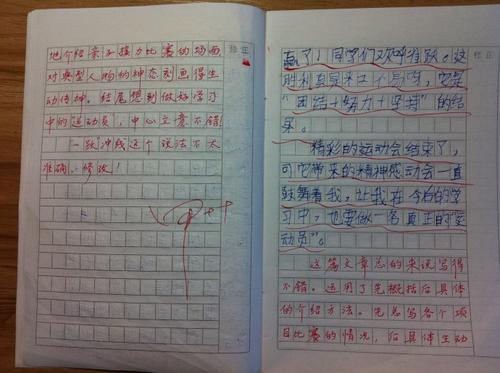 地介绍亲子接力比赛的场面
对典型人物的神态刻画得生
动传神。结尾想到做好学习
中的运动员，中心立意不错
一跃冲线这个说法不太
准确，修改！
赢了！同学们欢呼雀跃。这
胜利真是来之不易呀，它是
“团结+努力+坚持”的结
果。
精彩的运动会结束了，
可它带来的精神感动会一直
鼓舞着我，让我在今后的学
习中，也要做一名“真正的运
动员”。
这篇文章总的来说写得
不错。运用了先概括后具体
的介绍方法。先总写各个项
目比赛的情况，后具体生动